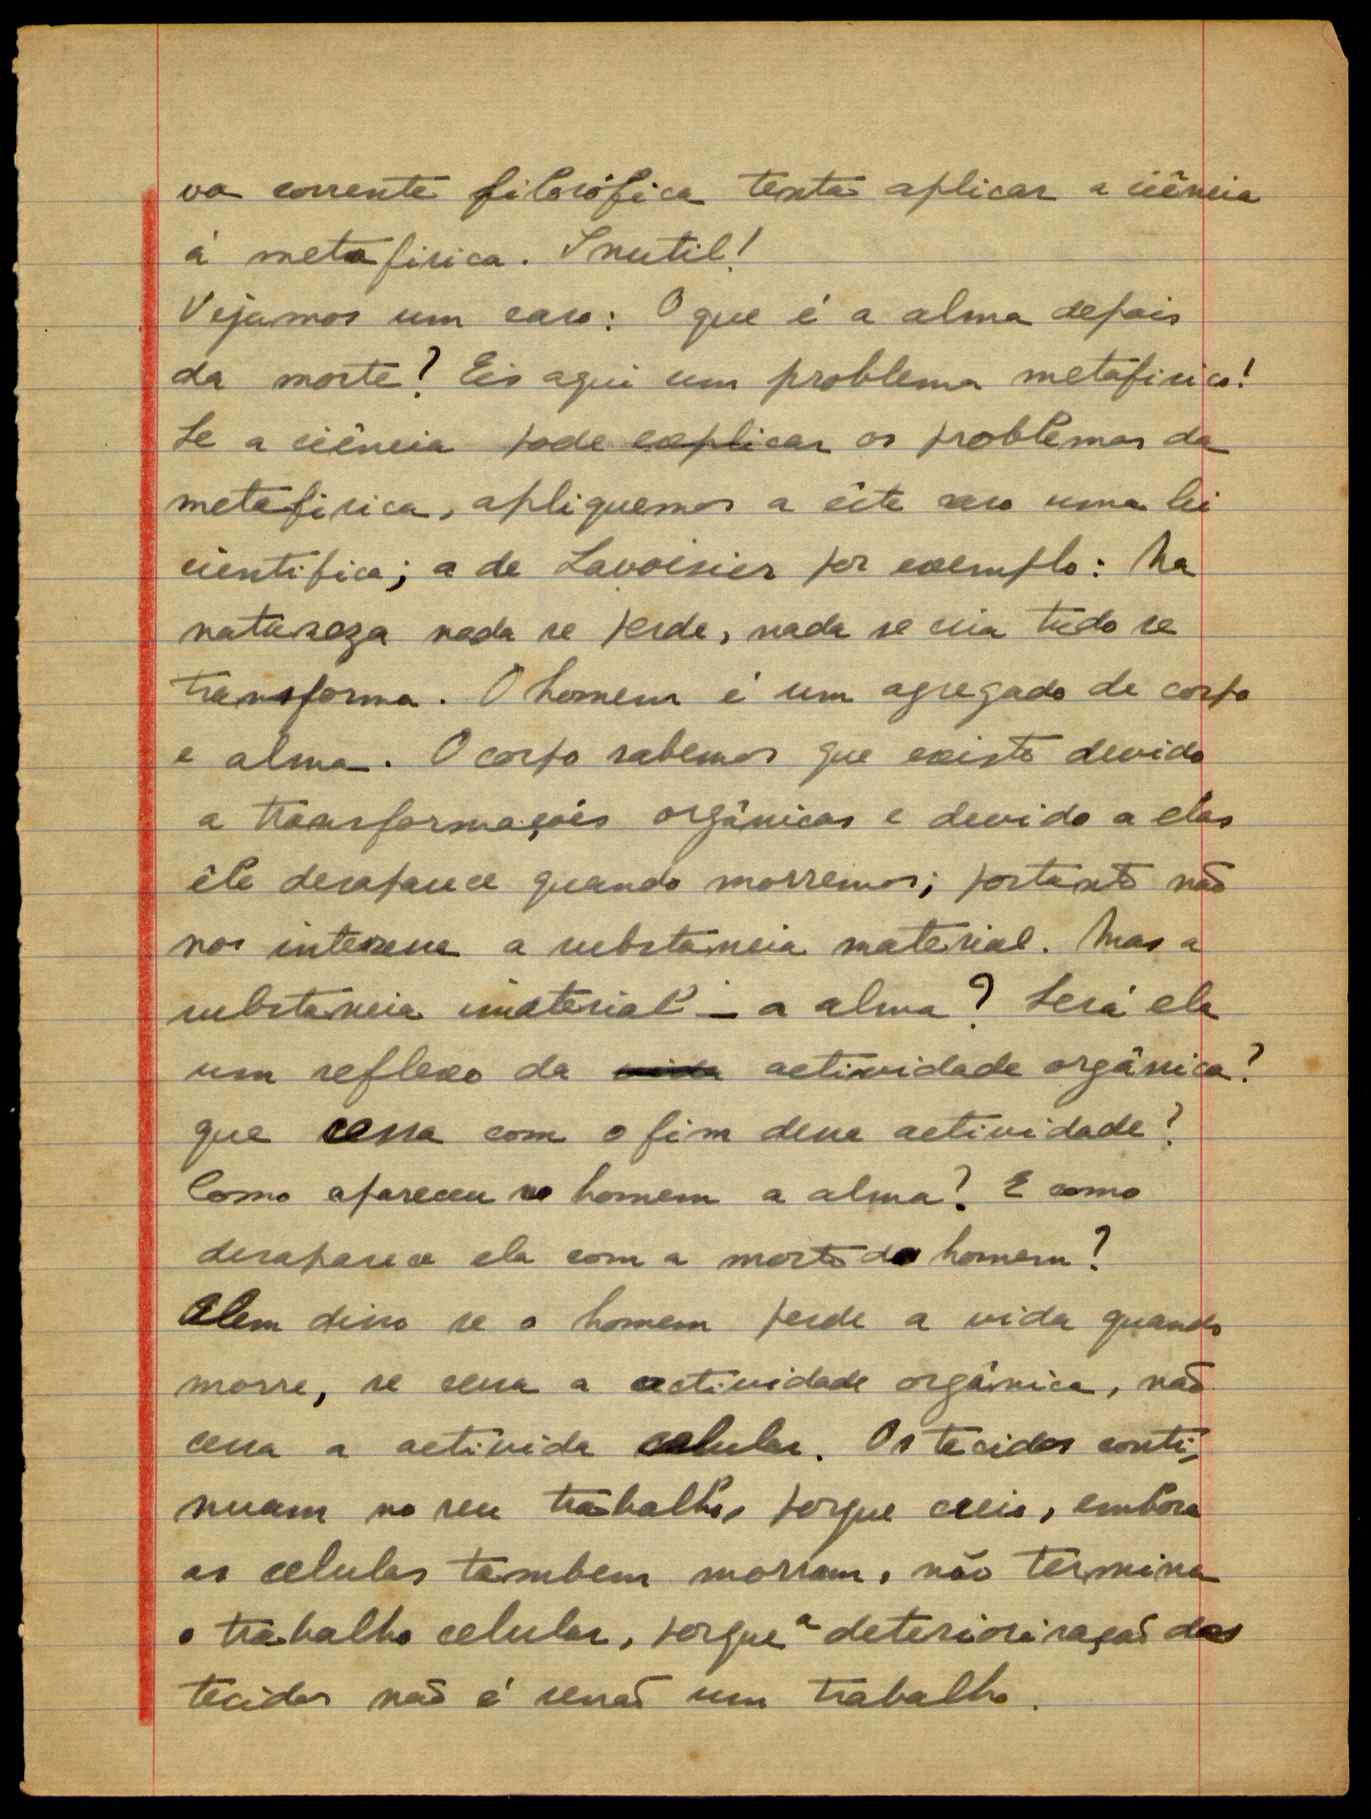 va corrente filosófica tenta aplicar a ciência
á metafisica. Inutil!
Vejamos um caso: O que é a alma depois
da morte? Eis aqui um problema metafisico!
Se a ciência pode explicar os problemas da
metafisica, apliquemos a êste caso uma lei
cientifica; a de Lavoisier por exemplo: Na
natureza nada se perde, nada se cria tudo se
transforma. O homem é um agregado de corpo
e alma. O corpo sabemos que existe devido
a transformações orgânicas e devido a elas
êle desaparece quando morremos; portanto não
nos interesse a substancia material. Mas a
substancia imaterial – a alma? Será ela
um reflexo da vida actividade orgânica?
que cessa com o fim dessa actividade?
Como apareceu no homem a alma? E como
desaparece ela com a morte do homem?
Alem disso se o homem perde a vida quando
morre, se cessa a actividade orgânica, não
cessa a activida celular. Os tecidos conti-
nuam no seu trabalho, porque creio, embora
as celulas tambem morram, não termina
o trabalho celular, porque a deterioração dos
tecidos não é senão um trabalho.